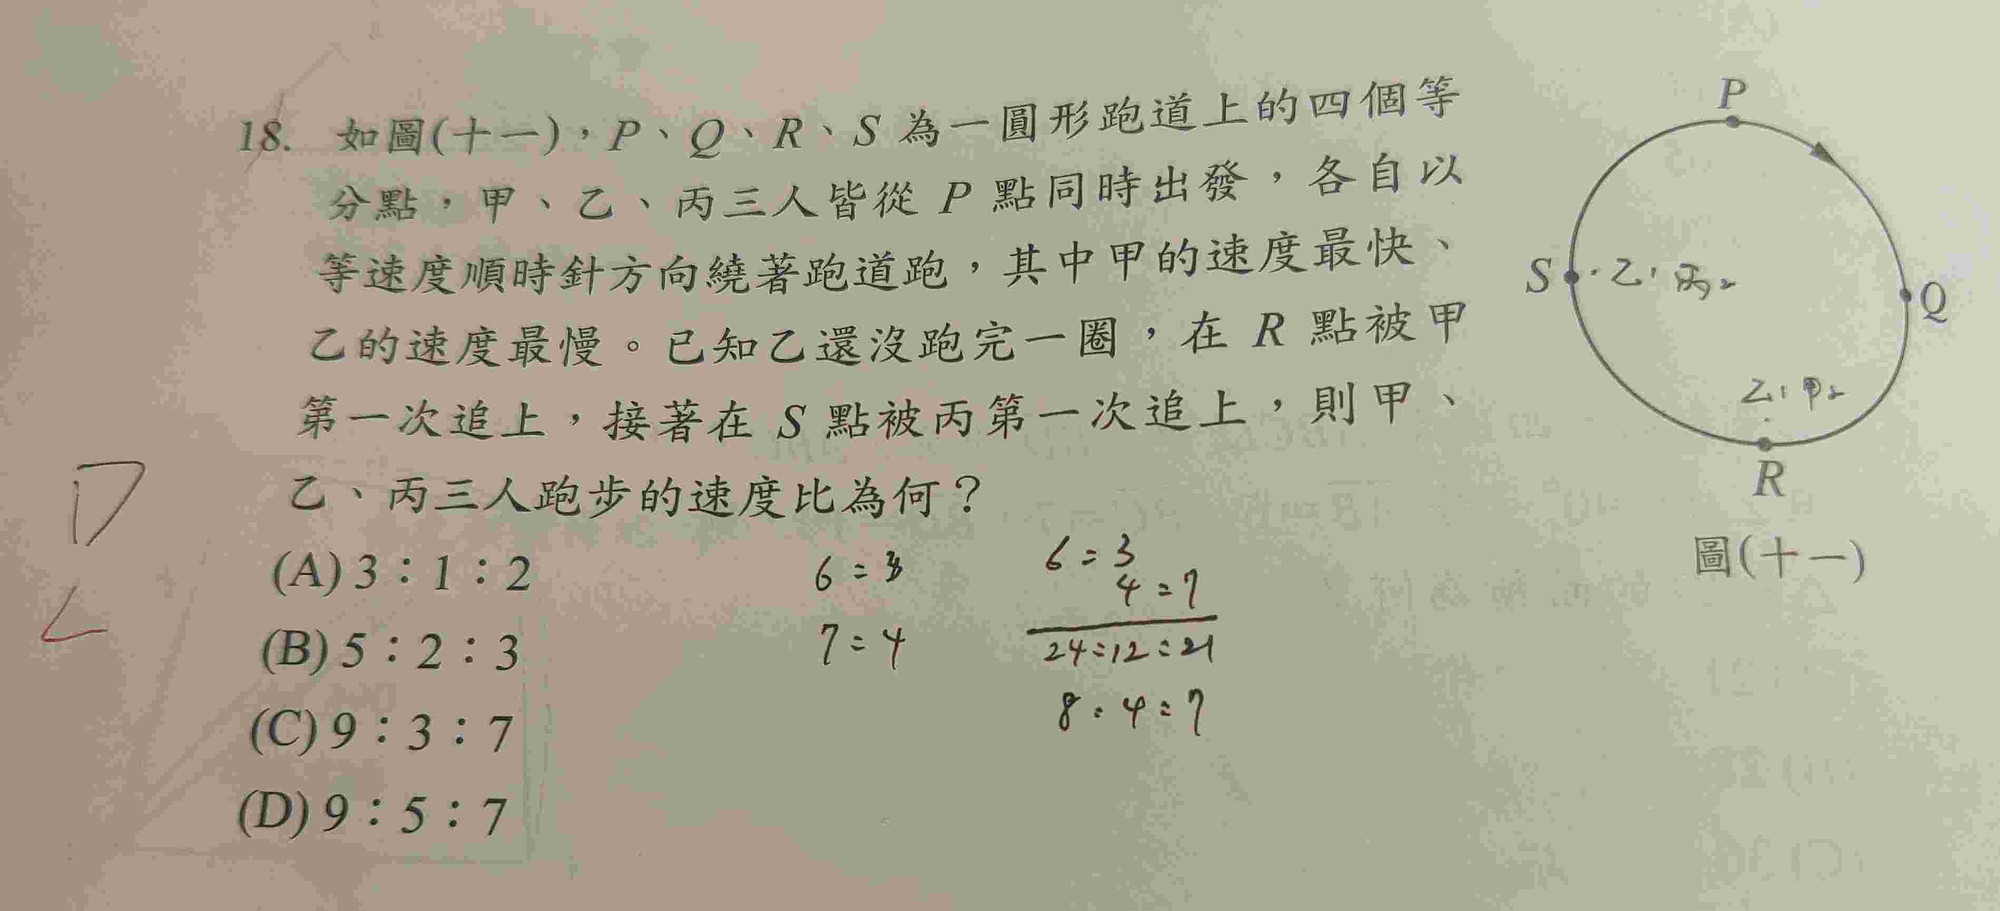 18. 如圖(十一)，P、Q、R、S 為一圓形跑道上的四個等
分點，甲、乙、丙三人皆從 P 點同時出發，各自以
等速度順時針方向繞著跑道跑，其中甲的速度最快、
乙的速度最慢。已知乙還沒跑完一圈，在 R 點被甲
第一次追上，接著在 S 點被丙第一次追上，則甲、
乙、丙三人跑步的速度比為何？
(A) 3：1：2
(B) 5：2：3
(C) 9：3：7
(D) 9：5：7
D
6 : 3
7 : 4
6 : 3
4 : 7
24 : 12 : 21
8 : 4 : 7
P
S
乙1 丙2
Q
乙1 甲2
R
圖(十一)